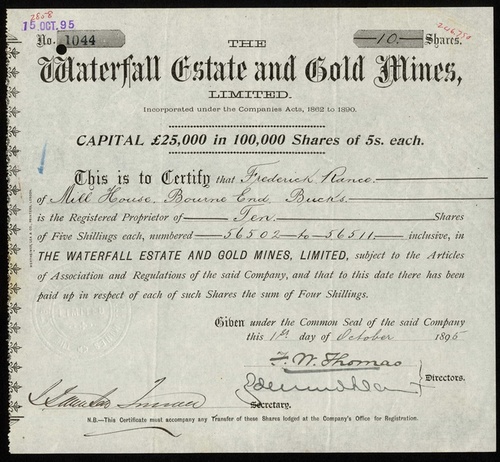 2808
15. OCT. 95
No. 1044
—10.— Shares.
THE
Waterfall Estate and Gold Mines,
LIMITED.
Incorporated under the Companies Acts, 1862 to 1890.
CAPITAL £25,000 in 100,000 Shares of 5s. each.
This is to Certify that Frederick Rance.
of Mill House, Bourne End, Bucks.
is the Registered Proprietor of — Ten — Shares
of Five Shillings each, numbered — 56502 — to — 56511 — inclusive, in
THE WATERFALL ESTATE AND GOLD MINES, LIMITED, subject to the Articles
of Association and Regulations of the said Company, and that to this date there has been
paid up in respect of each of such Shares the sum of Four Shillings.
Given under the Common Seal of the said Company
this 11th day of October 1895
F. W. Thomas
Directors.
Secretary.
N.B.—This Certificate must accompany any Transfer of these Shares lodged at the Company's Office for Registration.